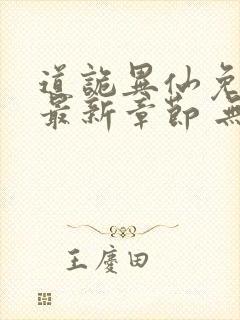 道詭異仙免
最新章節 無
王慶田